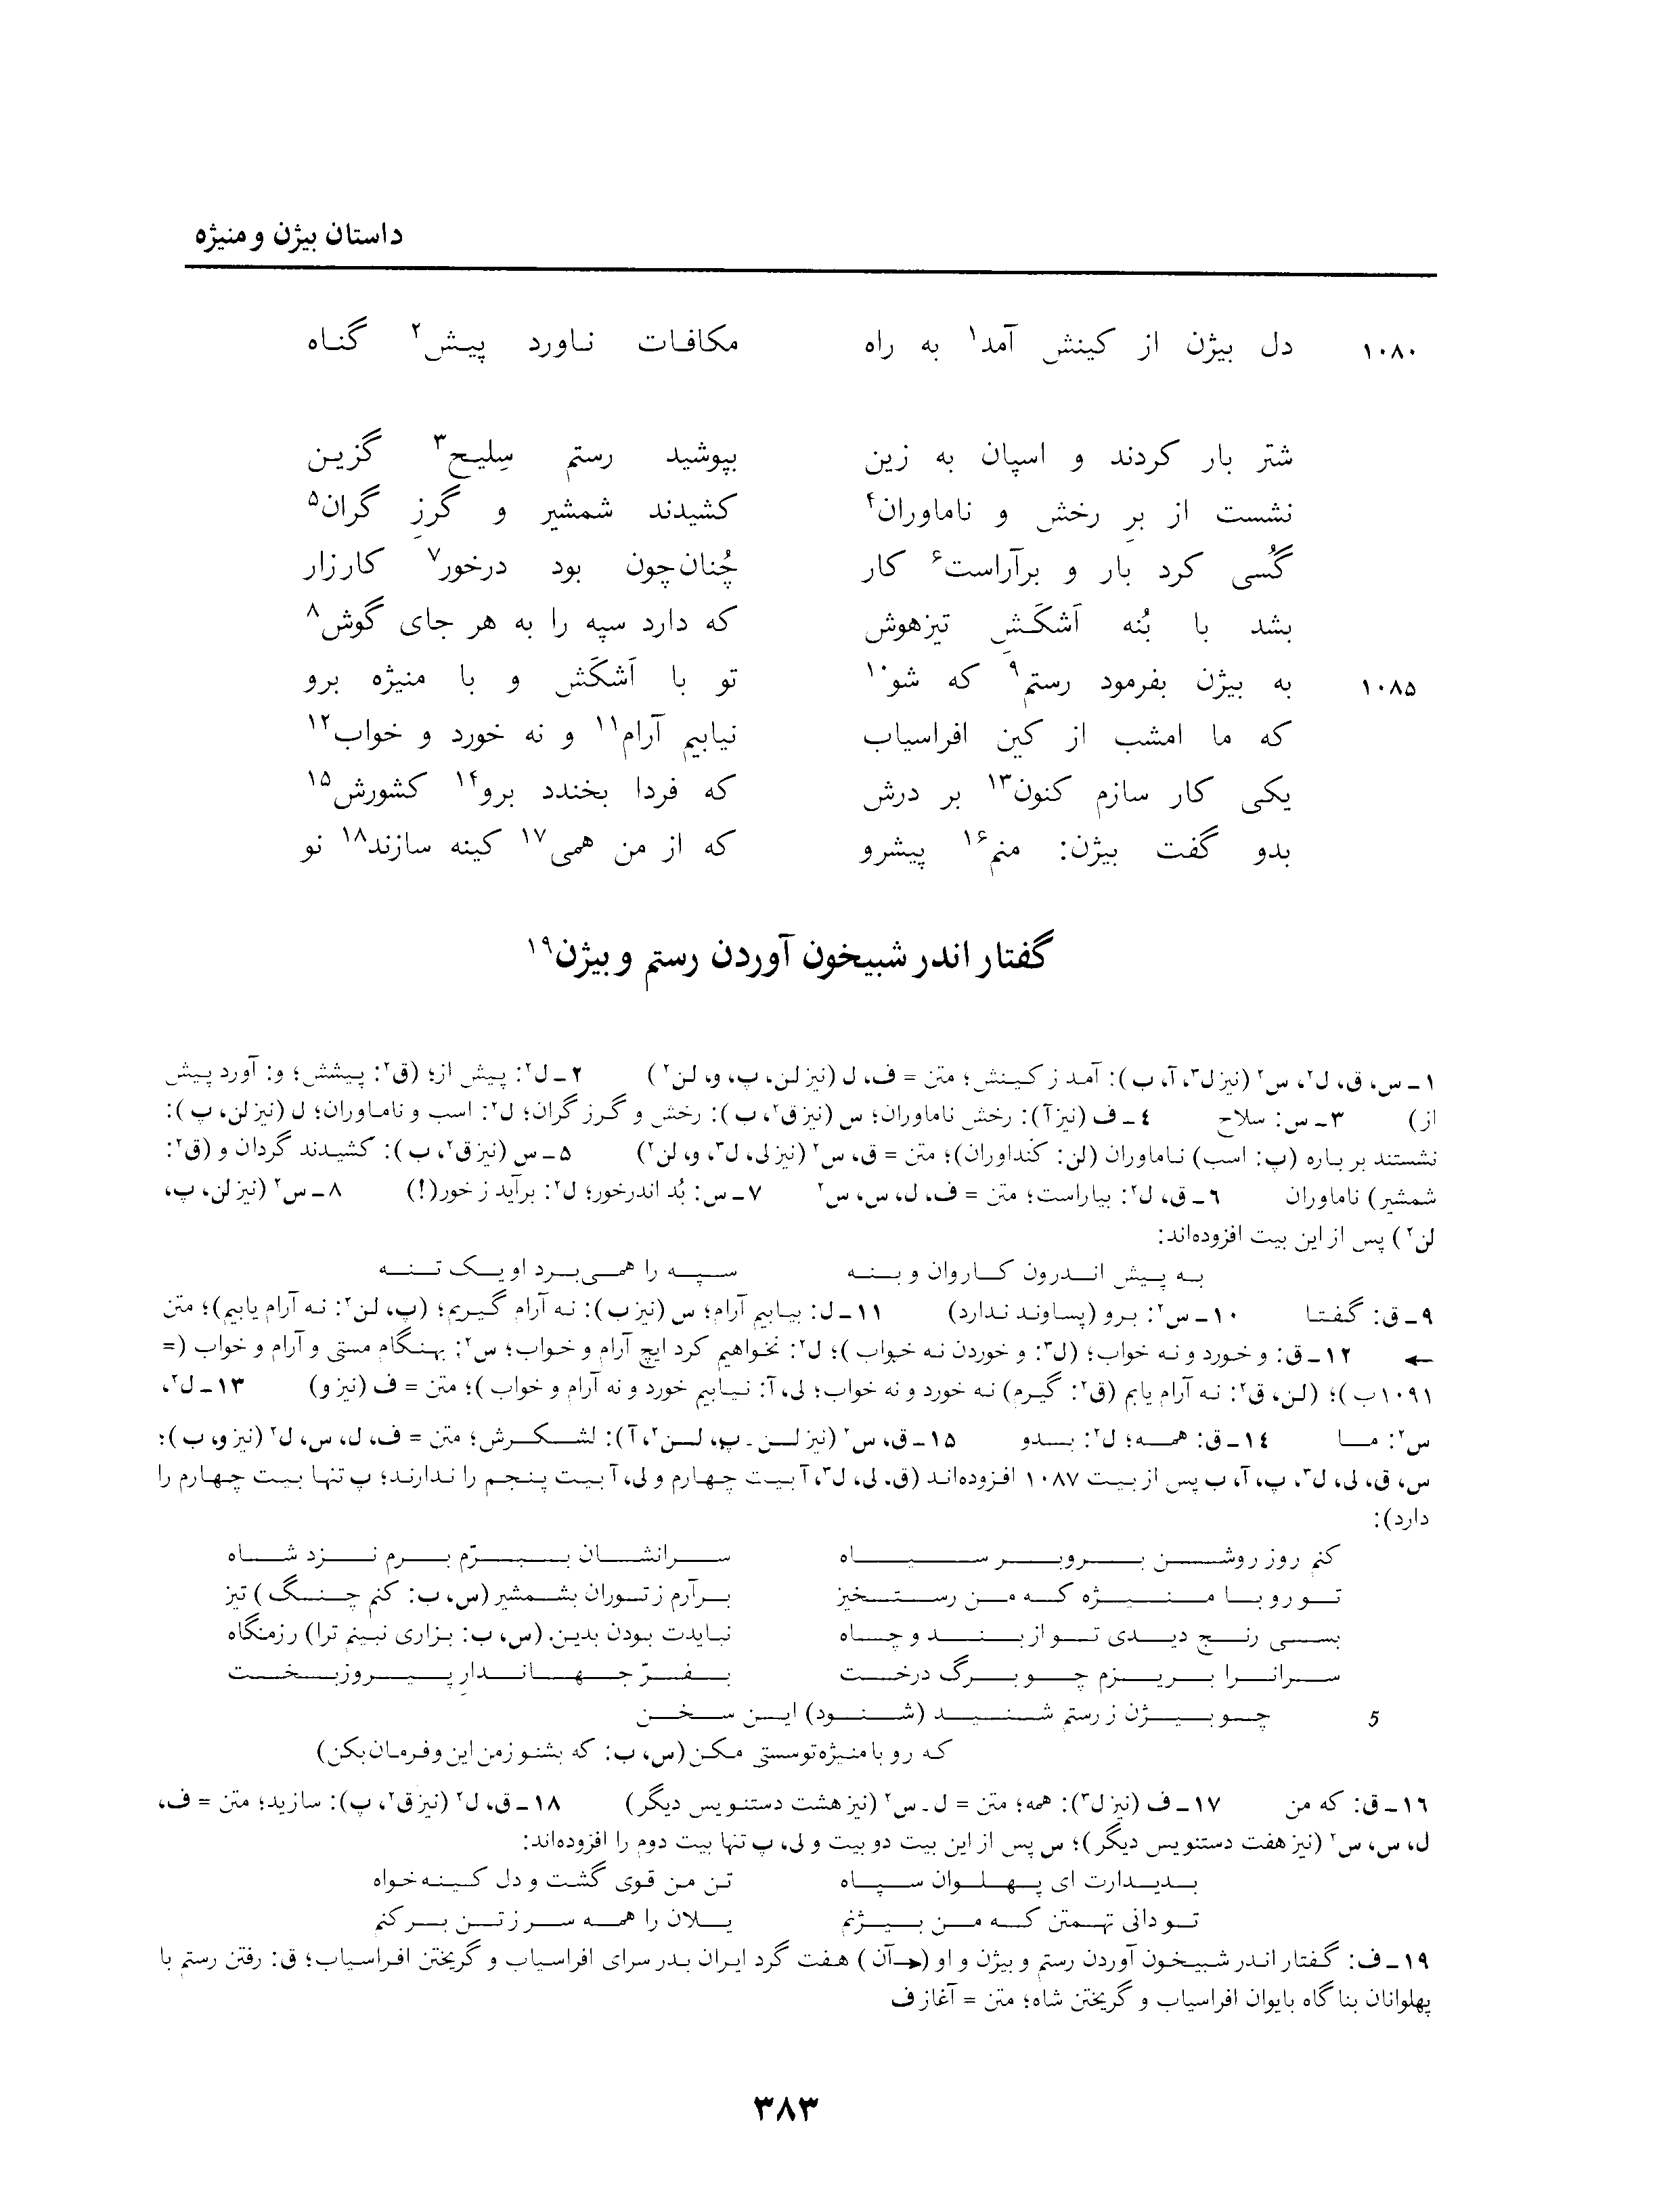 داستان بیژن و منیژه
۱۰۸۰ دل بیژن از کینش آمد۱ به راه مکافات ناورد پیش۲ گناه
شتر بار کردند و اسپان به زین بپوشید رستم سِلیح۳ گزین
نشست از برِ رخش و ناماوران۴ کشیدند شمشیر و گرزِ گران۵
گُسی کرد بار و برآراست۶ کار چُنان‌چون بود درخور۷ کارزار
بشد با بُنه اَشکَشِ تیزهوش که دارد سپه را به هر جای گوش۸
۱۰۸۵ به بیژن بفرمود رستم۹ که شو۱۰ تو با اَشکَش و با منیژه برو
که ما امشب از کین افراسیاب نیابیم آرام۱۱ و نه خورد و خواب۱۲
یکی کار سازم کنون۱۳ بر درش که فردا بخندد برو۱۴ کشورش۱۵
بدو گفت بیژن: منم۱۶ پیشرو که از من همی۱۷ کینه سازند۱۸ نو
گفتار اندر شبیخون آوردن رستم و بیژن۱۹
۱ـ س، ق، ل۲، س۲ (نیز ل۳، آ، ب): آمد ز کینش؛ متن = ف، ل (نیز لن، پ، و، لن۲) ۲ـ ل۲: پیش از؛ (ق۲: پیشش؛ و: آورد پیش
از) ۳ـ س: سلاح ٤ـ ف (نیز آ): رخش ناماوران؛ س (نیز ق۲، ب): رخش و گرز گران؛ ل۲: اسب و ناماوران؛ ل (نیز لن، پ):
نشستند بر باره (پ: اسب) ناماوران (لن: کنداوران)؛ متن = ق، س۲ (نیز لی، ل۳، و، لن۲) ۵ـ س (نیز ق۲، ب): کشیدند گردان و (ق۲:
شمشیر) ناماوران ٦ـ ق، ل۲: بیاراست؛ متن = ف، ل، س، س۲ ۷ـ س: بُد اندرخور؛ ل۲: برآید ز خور(!) ۸ـ س۲ (نیز لن، پ،
لن۲) پس از این بیت افزوده‌اند:
به پیش اندرون کاروان و بنه سپه را همی‌برد او یک تنه
۹ـ ق: گفتا ۱۰ـ س۲: برو (پساوند ندارد) ۱۱ـ ل: بیابیم آرام؛ س (نیز ب): نه آرام گیریم؛ (پ، لن۲: نه آرام یابیم)؛ متن
← ۱۲ـ ق: و خورد و نه خواب؛ (ل۳: و خوردن نه خواب)؛ ل۲: نخواهیم کرد ایچ آرام و خواب؛ س۲: بهنگام مستی و آرام و خواب (=
۱۰۹۱ب)؛ (لن، ق۲: نه آرام یابم (ق۲: گیرم) نه خورد و نه خواب؛ لی، آ: نیابیم خورد و نه آرام و خواب)؛ متن = ف (نیز و) ۱۳ـ ل۲،
س۲: ما ۱٤ـ ق: همه؛ ل۲: بدو ۱۵ـ ق، س۲ (نیز لن ـ پ، لن۲، آ): لشکرش؛ متن = ف، ل، س، ل۲ (نیز و، ب)؛
س، ق، لی، ل۳، پ، آ، ب پس از بیت ۱۰۸۷ افزوده‌اند (ق، لی، ل۳، آ بیت چهارم و لی، آ بیت پنجم را ندارند؛ پ تنها بیت چهارم را
دارد):
کنم روز روشن بروبر سیاه سرانشان ببرّم برم نزد شاه
تو رو با منیژه که من رستخیز برآرم ز توران بشمشیر (س، ب: کنم چنگ) تیز
بسی رنج دیدی تو از بند و چاه نبایدت بودن بدین. (س، ب: بزاری نبینم ترا) رزمگاه
سرانرا بریزم چو برگ درخت بفرّ جهاندارِ پیروزبخت
5 چو بیژن ز رستم شنید (شنود) این سخن
که رو با منیژه تو سستی مکن (س، ب: که بشنو ز من این و فرمان بکن)
۱٦ـ ق: که من ۱۷ـ ف (نیز ل۳): همه؛ متن = ل ـ س۲ (نیز هشت دستنویس دیگر) ۱۸ـ ق، ل۲ (نیز ق۲، پ): سازید؛ متن = ف،
ل، س، س۲ (نیز هفت دستنویس دیگر)؛ س پس از این بیت دو بیت و لی، پ تنها بیت دوم را افزوده‌اند:
بدیدارت ای پهلوان سپاه تن من قوی گشت و دل کینه‌خواه
تو دانی تهمتن که من بیژنم یلان را همه سر ز تن برکنم
۱۹ـ ف: گفتار اندر شبیخون آوردن رستم و بیژن و او (← آن) هفت گرد ایران بدر سرای افراسیاب و گریختن افراسیاب؛ ق: رفتن رستم با
پهلوانان بناگاه بایوان افراسیاب و گریختن شاه؛ متن = آغاز ف
۳۸۳